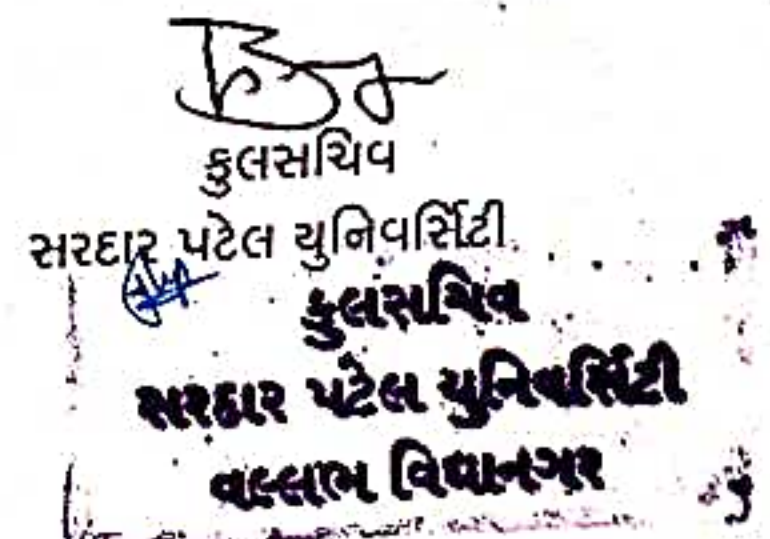 કુલસચિવ
સરદાર પટેલ યુનિવર્સિટી
કુલસચિવ
સરદાર પટેલ યુનિવર્સિટી
વલ્લભ વિદ્યાનગર